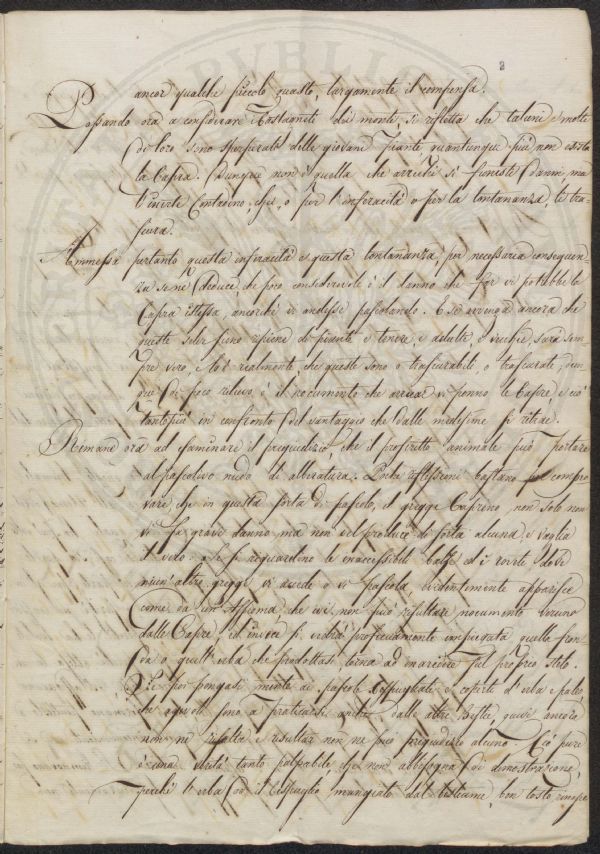 ancor qualche piccolo guasto, largamente il compensa.
Passando ora a considerare i castagneti dei monti si rifletta che taluni e molti
di loro sono sperperati delle giovani piante quantunque più non esista
la Capra. Dunque non è quella che arrechi sì funeste i danni, ma
l'inerte Contadino, che, o per l'inferacità o per la lontananza, li tra-
scura.
Ammessa pertanto questa inferacità e questa lontananza, per necessaria conseguen-
za se ne deduce che poco considerevole è il danno che far vi potrebbe la
Capra istessa, ancorchè vi andasse pascolando. E se avvenga ancora che
queste selve sieno ripiene di piante, e tenere, e adulte, e vecchie, sarà sem-
pre vero, che realmente che queste sono o trascurabili, o trascurate, dun-
que di poco rilievo è il nocumento che arrecar vi ponno le Capre, e ciò
tanto più in confronto del vantaggio che dalle medesime si ritrae.
Rimane ora ad esaminare il pregiudizio, che il prefisso animale può portare
al pascolivo nudo di alberatura. Poche riflessioni bastano per compro-
vare che in questa sorta di pascolo, il gregge Caprino non solo non
vi fa grave danno ma non ne produce di sorta alcuna, e vaglia
il vero. Se si riguardino le inaccessibili balze ed i roviti dove
niun'altro gregge vi accede o vi pascola, evidentemente apparisce
come da un Assioma, che ivi non può risultare nocumento veruno
dalle Capre, ed invece si vedrà proficuamente impiegata quella fron-
da o quell'erba che prodottasi torna ad marcire sul proprio stelo.
Se poi pongasi mente ai pascoli cespugliati, e coperti d'erba e paleo,
che agevoli sono a praticarsi anche dalle altre Bestie, quivi ancora
non ne risulta e risultar non ne può pregiudizio alcuno. Ciò pure
è una verità tanto palpabile che non abbisogna di dimostrazione,
perchè l'erba ed il cespuglio mangiato dal bestiame, ben tosto rinasce